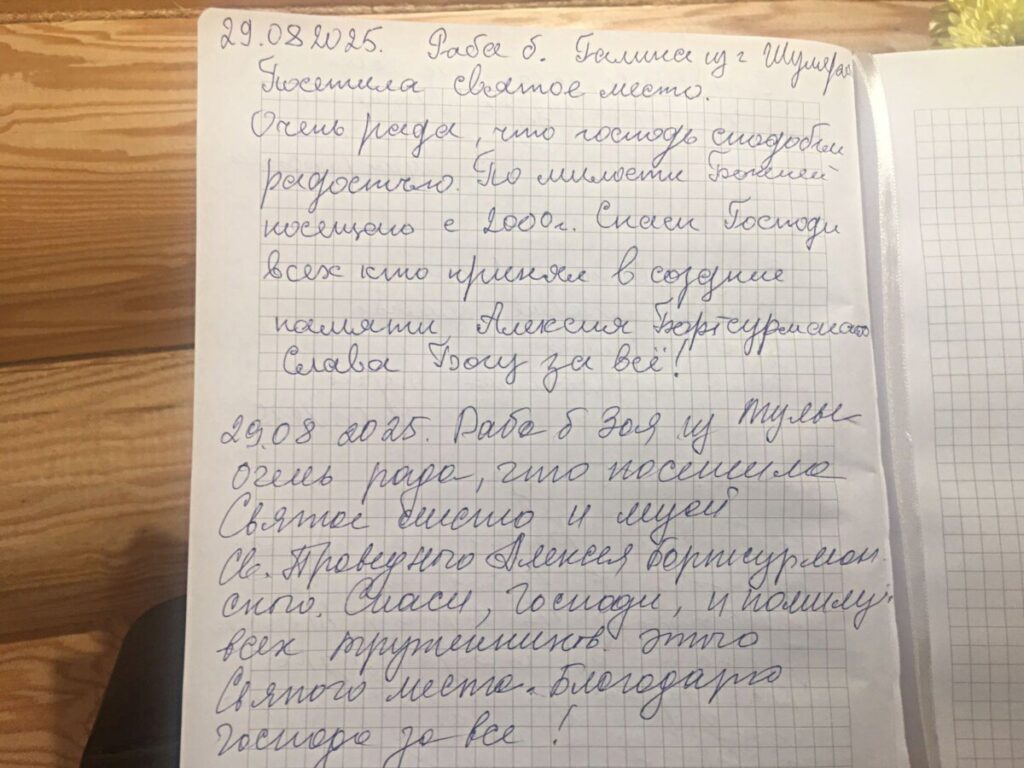 29.08 2025. Раба б. Галина из г Шумерля
Посетила святое место.
Очень рада, что господь сподобил
радостью. По милости Божией
посещаю с 2000г. Спаси Господи
всех кто принял в создние
памяти Алексия Бортсурманского
Слава Богу за всё!
29.08 2025. Раба б Зоя из Тулы
очень рада, что посетила
Святое место и музей
Св. Праведного Алексея Бортсурман-
ского. Спаси, Господи, и помилуй
всех тружеников этого
Святого места. Благодарю
Господа за все!